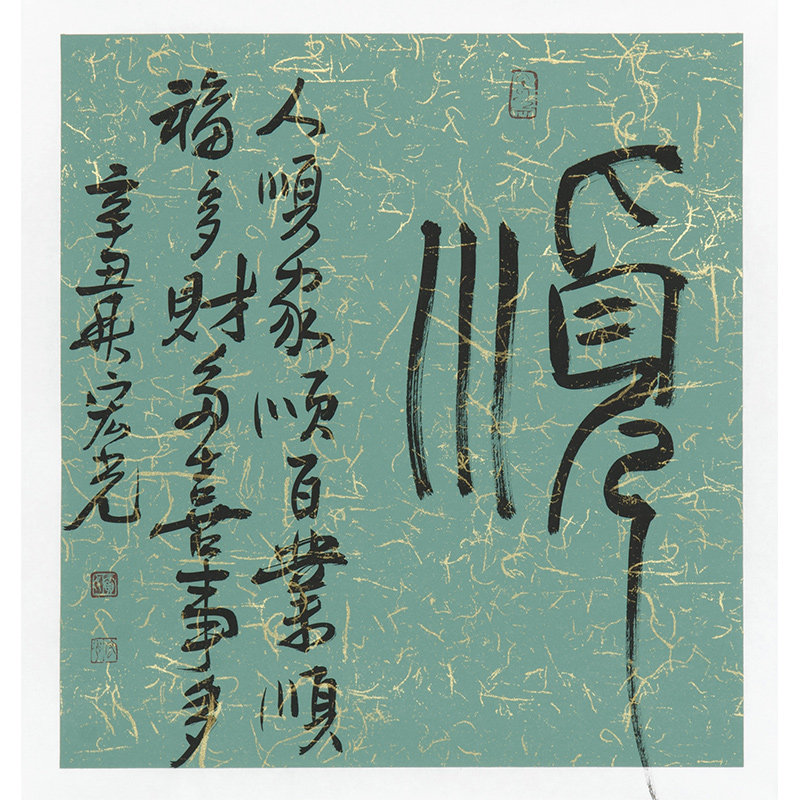 順
人順家順百業順
福多財多喜事多
辛丑英宏光